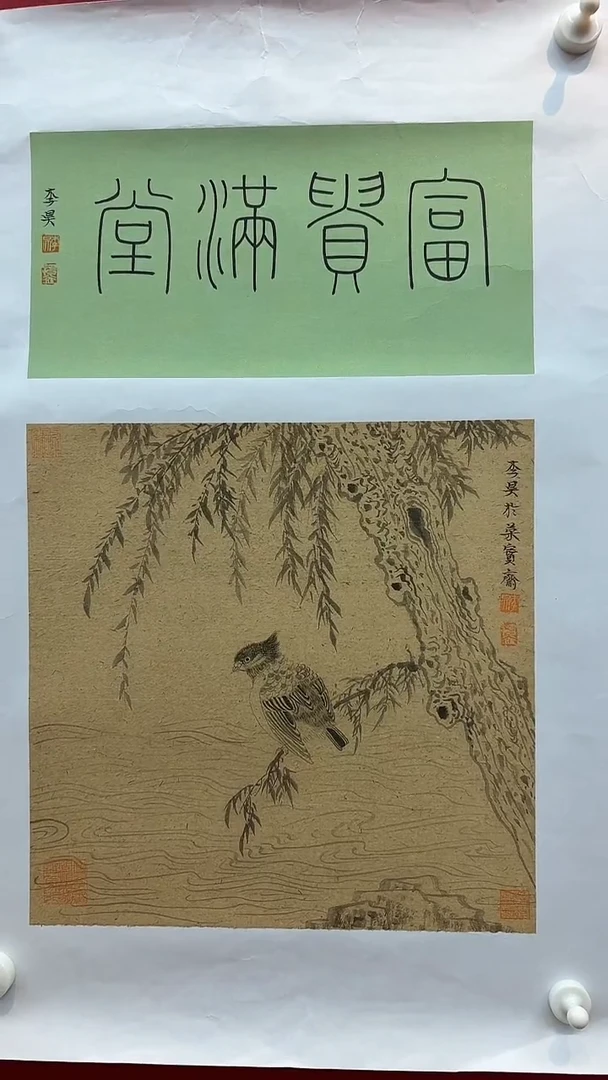 富貴滿堂
李昊
李昊於榮寶齋